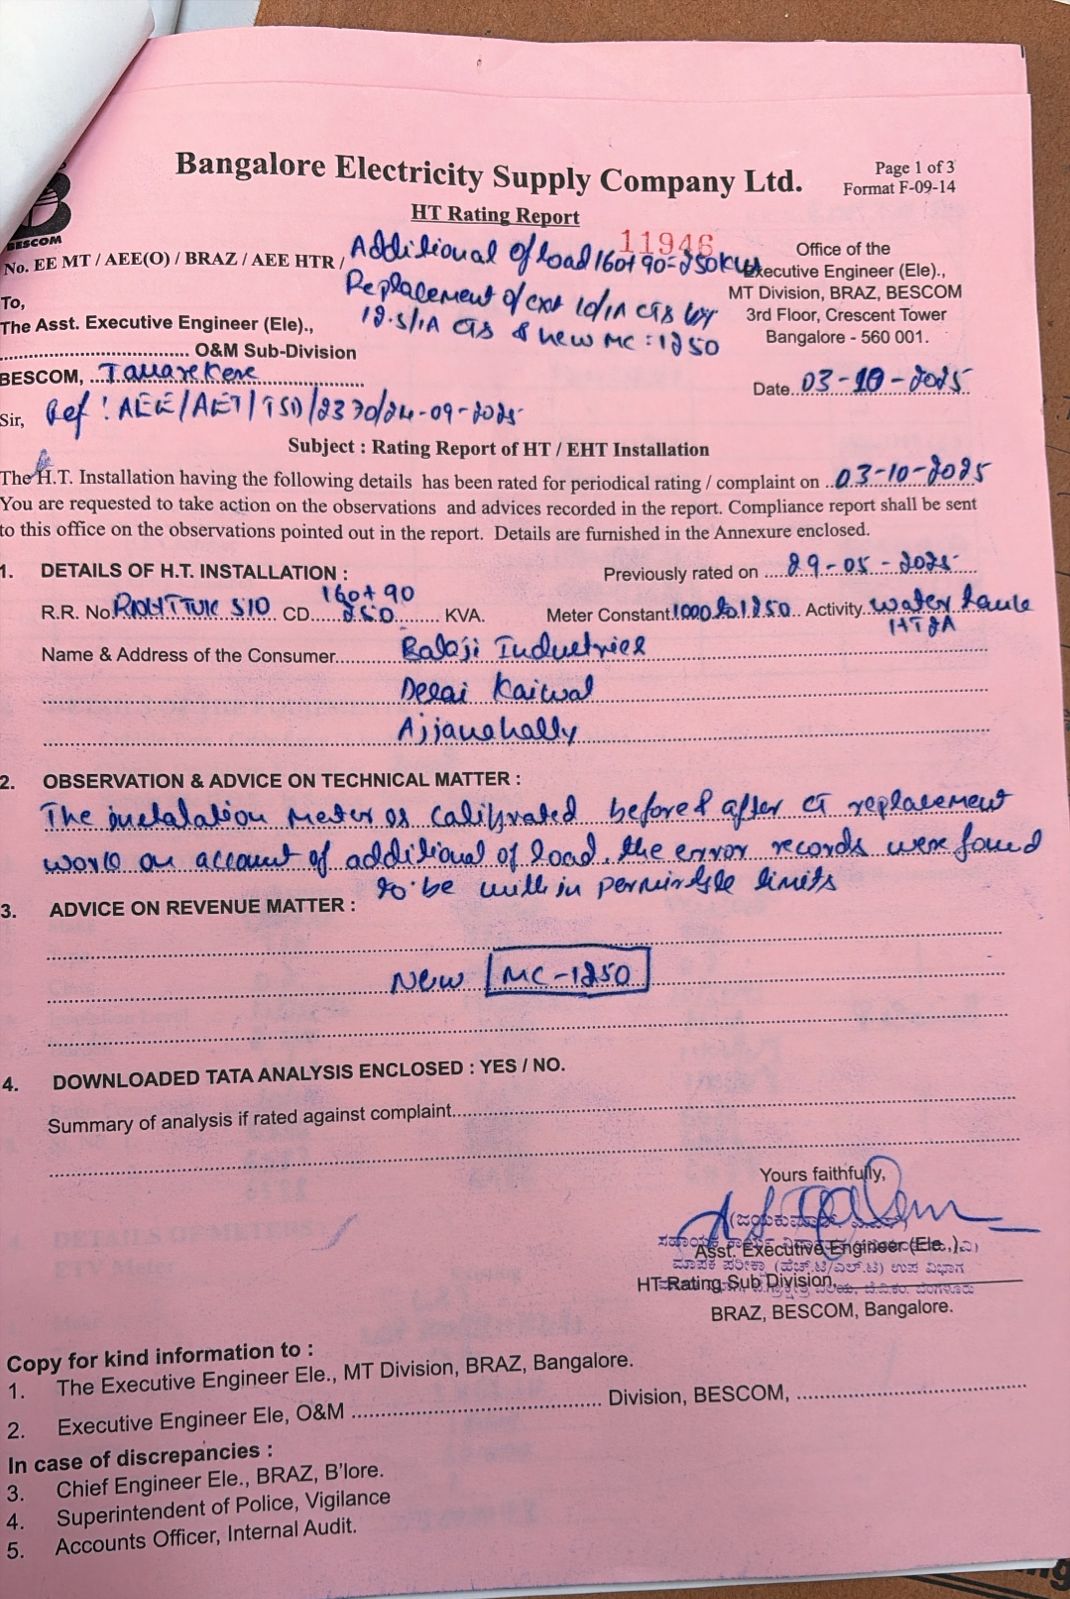 Bangalore Electricity Supply Company Ltd.
Page 1 of 3
Format F-09-14
HT Rating Report
BESCOM
11946
No. EE MT / AEE(O) / BRAZ / AEE HTR /
Additional of load 160+90=250KVA
Replacement of ext 10/1A CTs by
12.5/1A CTs & new MC : 1250
Office of the
Executive Engineer (Ele).,
MT Division, BRAZ, BESCOM
3rd Floor, Crescent Tower
Bangalore - 560 001.
To,
The Asst. Executive Engineer (Ele).,
.......................... O&M Sub-Division
BESCOM, Tavarekere
Date. 03-10-2025
Sir, Ref : AEE/AET/TSD/2370/24-09-2025
Subject : Rating Report of HT / EHT Installation
The H.T. Installation having the following details has been rated for periodical rating / complaint on 03-10-2025
You are requested to take action on the observations and advices recorded in the report. Compliance report shall be sent
to this office on the observations pointed out in the report. Details are furnished in the Annexure enclosed.
1. DETAILS OF H.T. INSTALLATION :
Previously rated on 29-05-2025
160+90
R.R. No. S10 CD 250 KVA. Meter Constant 1000 to 1250 Activity water
HT2A
Name & Address of the Consumer Balaji Industries
Kaiwal
Ajjanahally
2. OBSERVATION & ADVICE ON TECHNICAL MATTER :
The instalation meter is calibrated before & after CT replacement
work on account of additional of load. the error records were found
to be with in permissible limits
3. ADVICE ON REVENUE MATTER :
New MC-1250
4. DOWNLOADED TATA ANALYSIS ENCLOSED : YES / NO.
Summary of analysis if rated against complaint
Yours faithfully,
Asst. Executive Engineer (Ele.,)
ಮಾಪಕ ಪರೀಕ್ಷಾ (ಹೆಚ್.ಟಿ/ಎಲ್.ಟಿ) ಉಪ ವಿಭಾಗ
HT Rating Sub Division,
BRAZ, BESCOM, Bangalore.
Copy for kind information to :
1. The Executive Engineer Ele., MT Division, BRAZ, Bangalore.
2. Executive Engineer Ele, O&M .......................... Division, BESCOM, ..........................
In case of discrepancies :
3. Chief Engineer Ele., BRAZ, B'lore.
4. Superintendent of Police, Vigilance
5. Accounts Officer, Internal Audit.